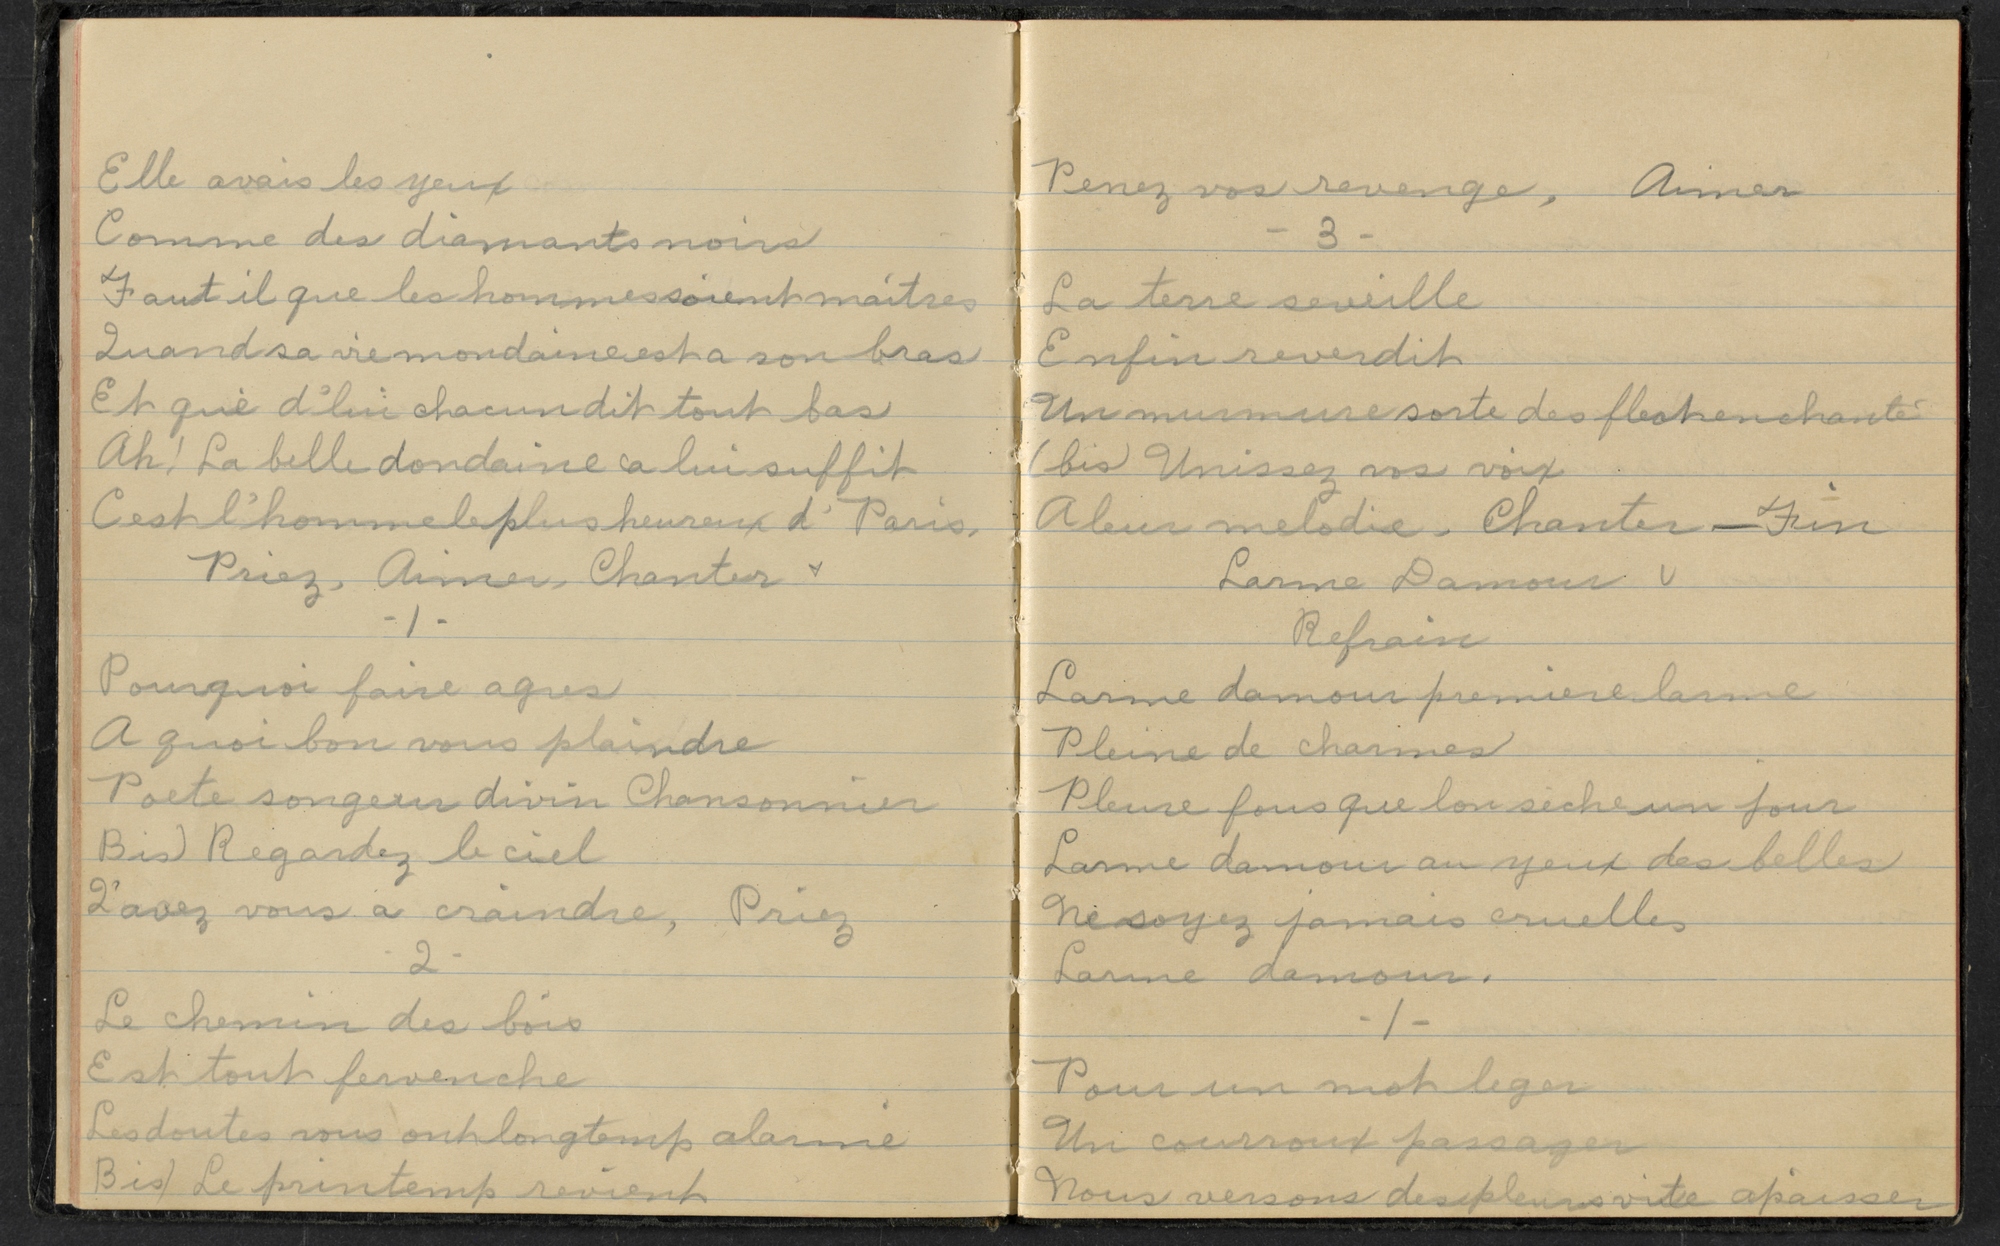 Elle avais les yeux
Comme des diamants noirs
Faut il que les hommes soient maîtres
Quand sa vie mondaine est a son bras
Et que d'lui chacun dit tout bas
Ah! La belle dondaine ca lui suffit
Cest l'homme le plus heureux d' Paris.
Priez, Aimer, Chanter v
-1-
Pourquoi faire agres
A quoi bon vous plaindre
Poete songeur divin Chansonnier
Bis) Regardez le ciel
Q'avez vous a craindre, Priez
-2-
Le chemin des bois
Est tout fervenche
Les doutes vous ont longtemp alarmé
Bis) Le printemp revient
Penez vos revenge, Aimer
-3-
La terre seveille
Enfin reverdit
Un murmure sorte des flech enchanté
(bis) Unissez vos voix
A leur melodie. Chanter — Fin
Larme Damour v
Refrain
Larme damour premiere larme
Pleine de charmes
Pleure fous que lon sèche un jour
Larme damour au yeux des belles
Ne soyez jamais cruelles
Larme damour.
-1-
Pour un mot leger
Un courroux passager
Nous versons des pleurs vite apaisser